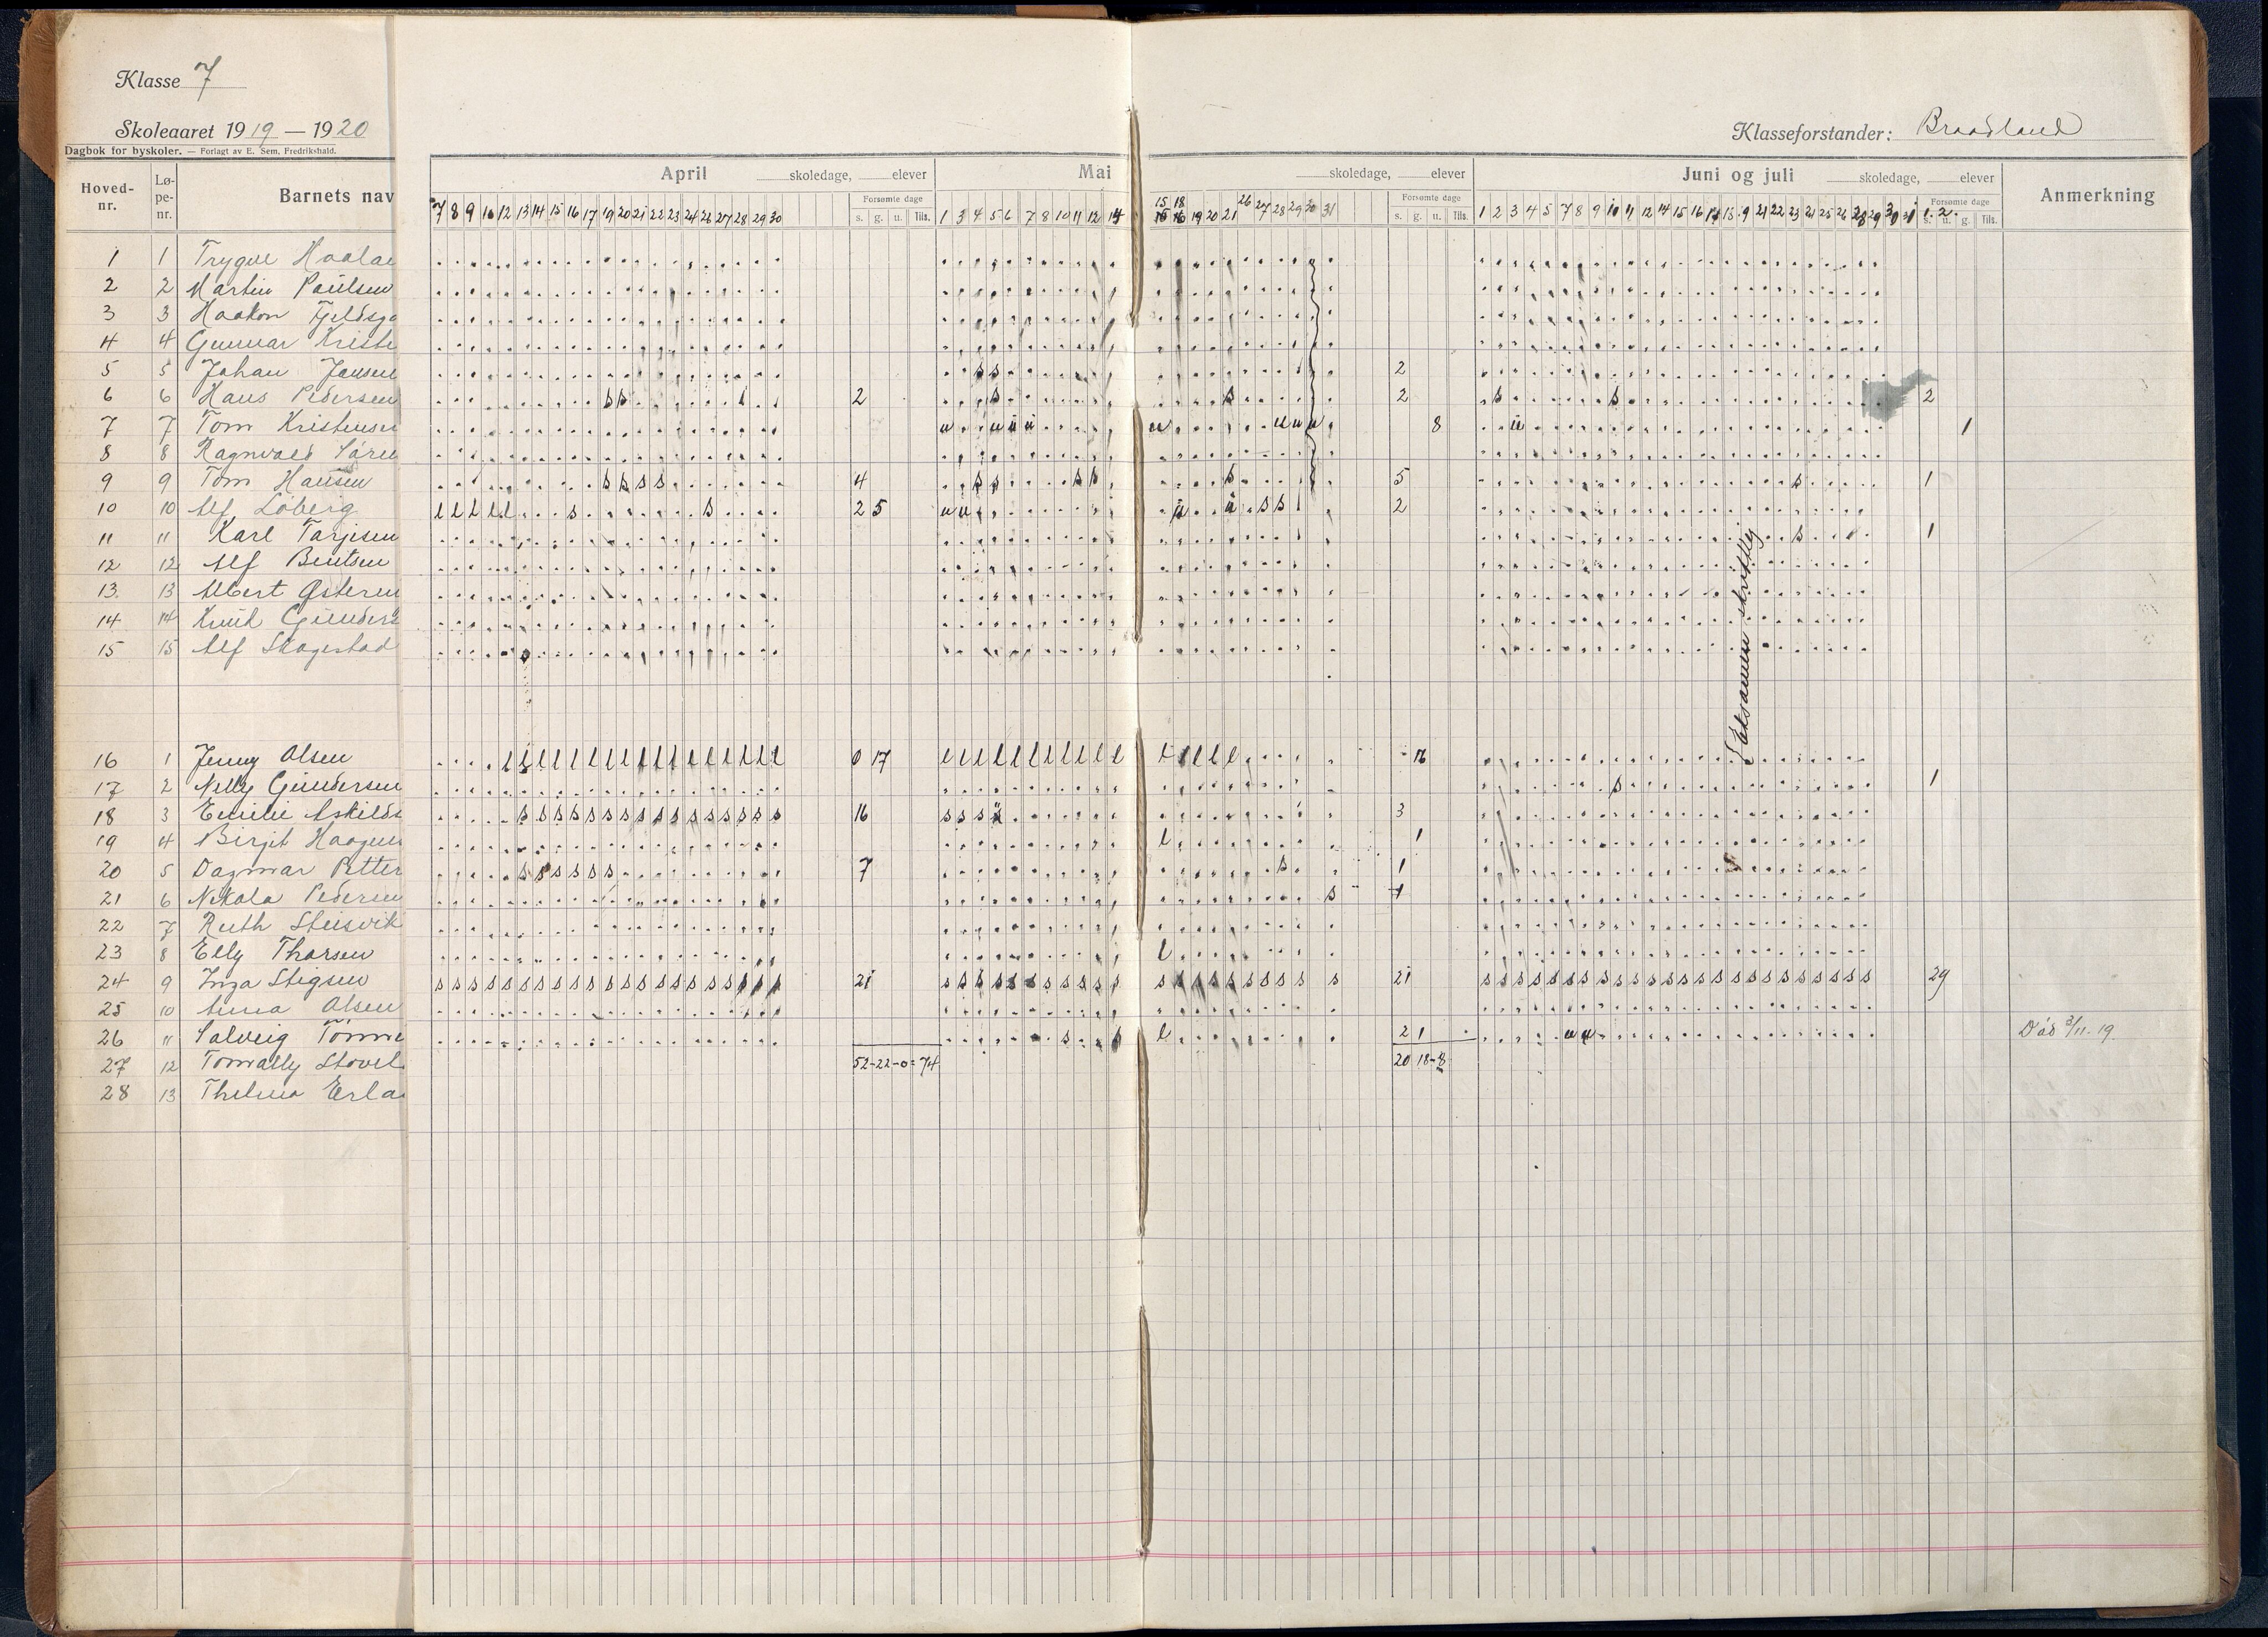 Klasse 7
Skoleaaret 1919 — 1920
Dagbok for byskoler. — Forlagt av E. Sem, Fredrikshald.
Klasseforstander: Braadland
Hoved-nr. Lø-pe-nr. Barnets nav
April skoledage, elever
Mai skoledage, elever
Juni og juli skoledage, elever
Anmerkning
Forsømte dage s. g. u. Tils.
Forsømte dage s. g. u. Tils.
Forsømte dage s. u. g. Tils.
7 8 9 10 12 13 14 15 16 17 19 20 21 22 23 24 26 27 28 29 30
1 3 4 5 6 7 8 10 11 12 14
15 18 19 20 21 26 27 28 29 30 31
1 2 3 4 5 7 8 9 10 11 12 14 15 16 17 18 19 21 22 23 24 25 26 28 29 30 31 1. 2.
1 1 Trygve Haalan
2 2 Martin Paulsen
3 3 Haakon Fjeldsga
4 4 Gunnar Kriste
5 5 Johan Jansen s s 2
6 6 Hans Pedersen s s 2 s s 2 s s 2
7 7 Tom Kristensen u u u u u u u u 8 u 1
8 8 Ragnvald Søren
9 9 Tom Hansen s s s s 4 s s s s s 5 s 1
10 10 Alf Löberg l l l l l s s 2 5 u u u u s s 2
11 11 Karl Tarjesen s 1
12 12 Alf Bentsen
13. 13 Albert Østeren
14 14 Knut Gunders
15 15 Alf Skagestad
Eksamen skriftlig
16 1 Jenny Olsen l l l l l l l l l l l l l l l l l 0 17 l l l l l l l l l l l l l l l l 16
17 2 Nelly Gundersen s 1
18 3 Emilie Askilds s s s s s s s s s s s s s s s s 16 s s s 3
19 4 Birgit Haagen l 1
20 5 Dagmar Petter s s s s s s 7 s 1
21 6 Nikola Pedersen s 1
22 7 Ruth Stusvik
23 8 Elly Thorsen l
24 9 Inga Stigsen s s s s s s s s s s s s s s s s s s s s s 21 s s s s s s s s s s s s s s s s s s s s s 21 s s s s s s s s s s s s s s s s s s s s s s s s 29
25 10 Anna Olsen
26 11 Solveig Tönne s s l 2 1 u u Död 3/11. 19
27 12 Tomally Stovel 52-22-0=74 20 18-8
28 13 Thelma Erla